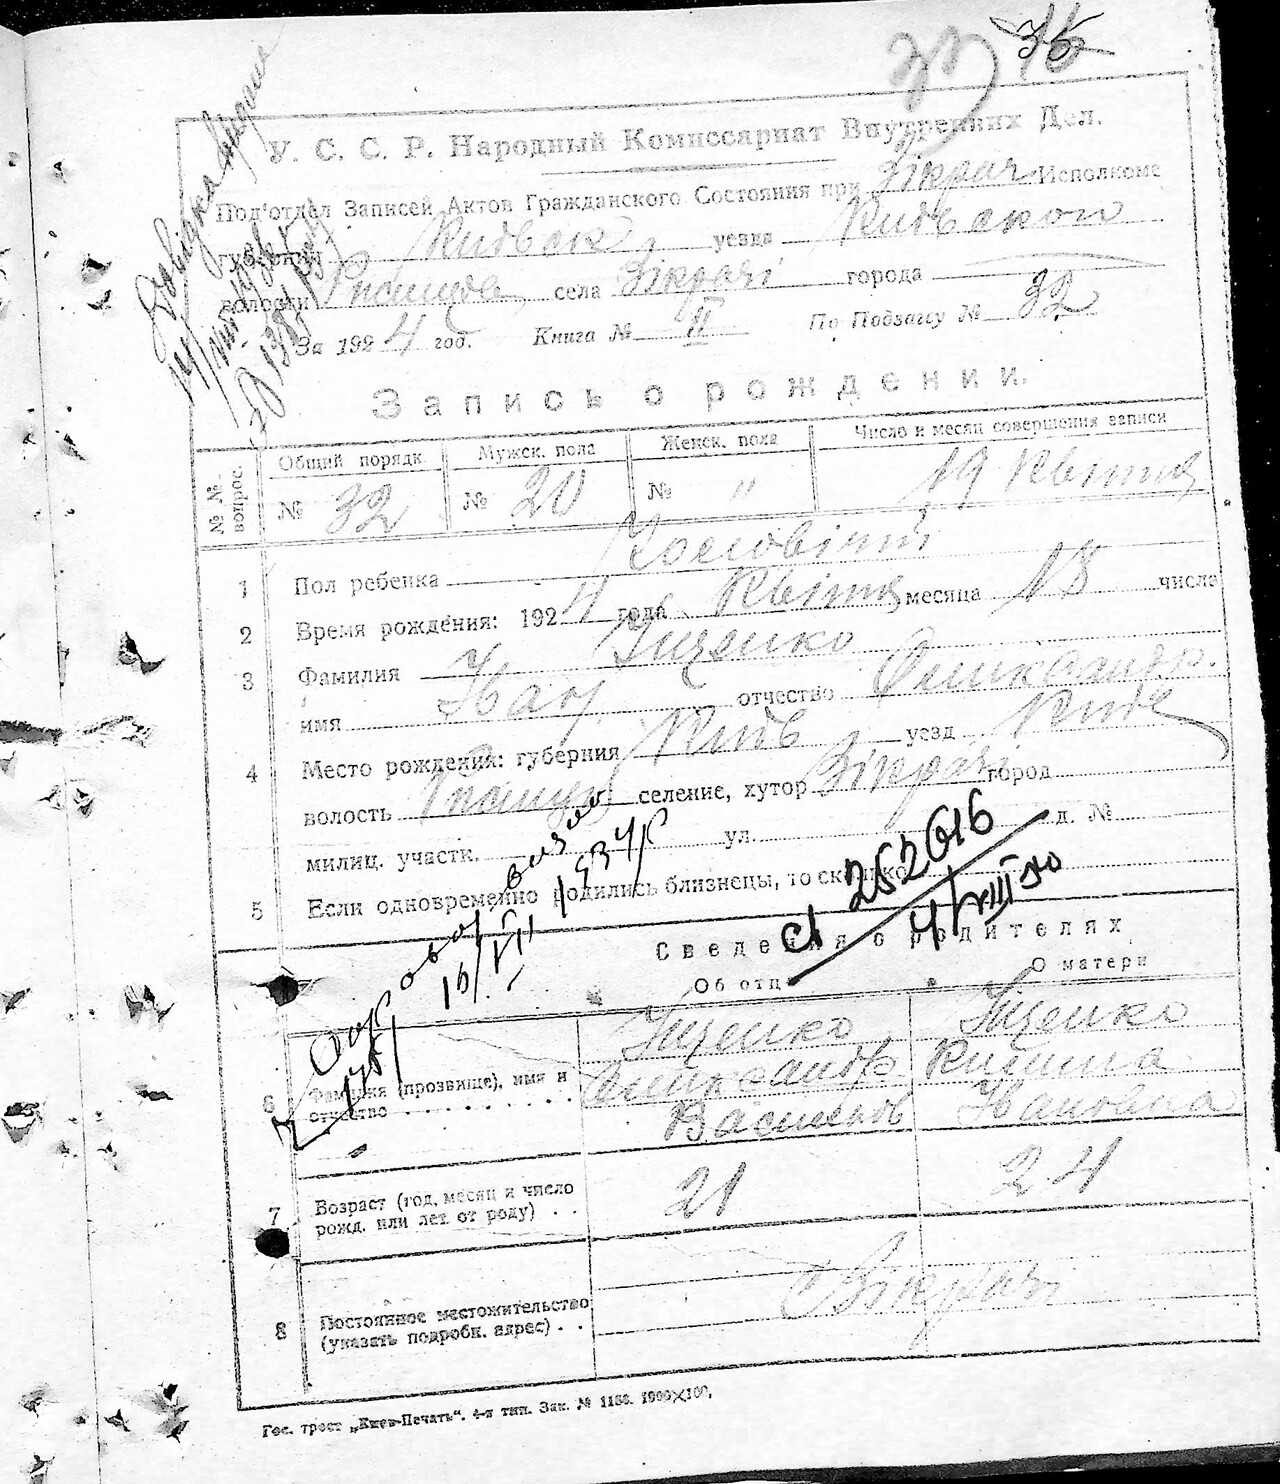 32 35
У. С. С. Р. Народный Комиссариат Внутренних Дел.
Под'отдел Записей Актов Гражданского Состояния при Зікрач. Исполкоме
губернии Київськ. уезда Київськой
волости села Зікрачі города
За 1924 год. Книга № II По Подзагу № 32
Запись о рождении.
№ № вопрос. Общий порядк. Мужск. пола Женск. пола Число и месяц совершения записи
№ 32 № 20 № " 19 Квітня
1 Пол ребенка
2 Время рождения: 1924 года Квітня месяца 18 числа
3 Фамилия Іщенко
имя Іван отчество Олександр.
4 Место рождения: губерния Київ уезд Київ
волость селение, хутор Зікрачі город
милиц. участк. ул. д. №
5 Если одновременно родились близнецы, то сколько
252616
4/VIII 50
16/VII 1934 р
Сведения о родителях
Об отце О матери
6 Фамилия (прозвище), имя и отчество Іщенко Іщенко
Олександр
Васильов Івановна
7 Возраст (год, месяц и число рожд. или лет от роду) 21 24
8 Постоянное местожительство (указать подробн. адрес) с Зікрачі
Гос. трест „Киев-Печать". 4-я тип. Зак. № 1166. 1000×100.